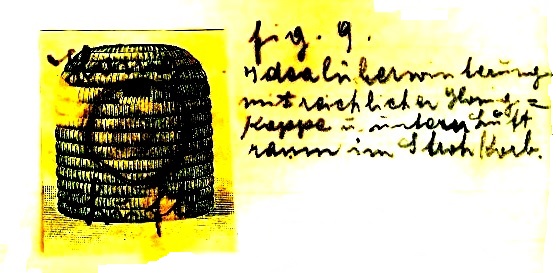 fig. 9.
Idealüberwinterung
mit reichlicher Honig=
Kappe u. unterm Luft
raum im Stroh Korb.